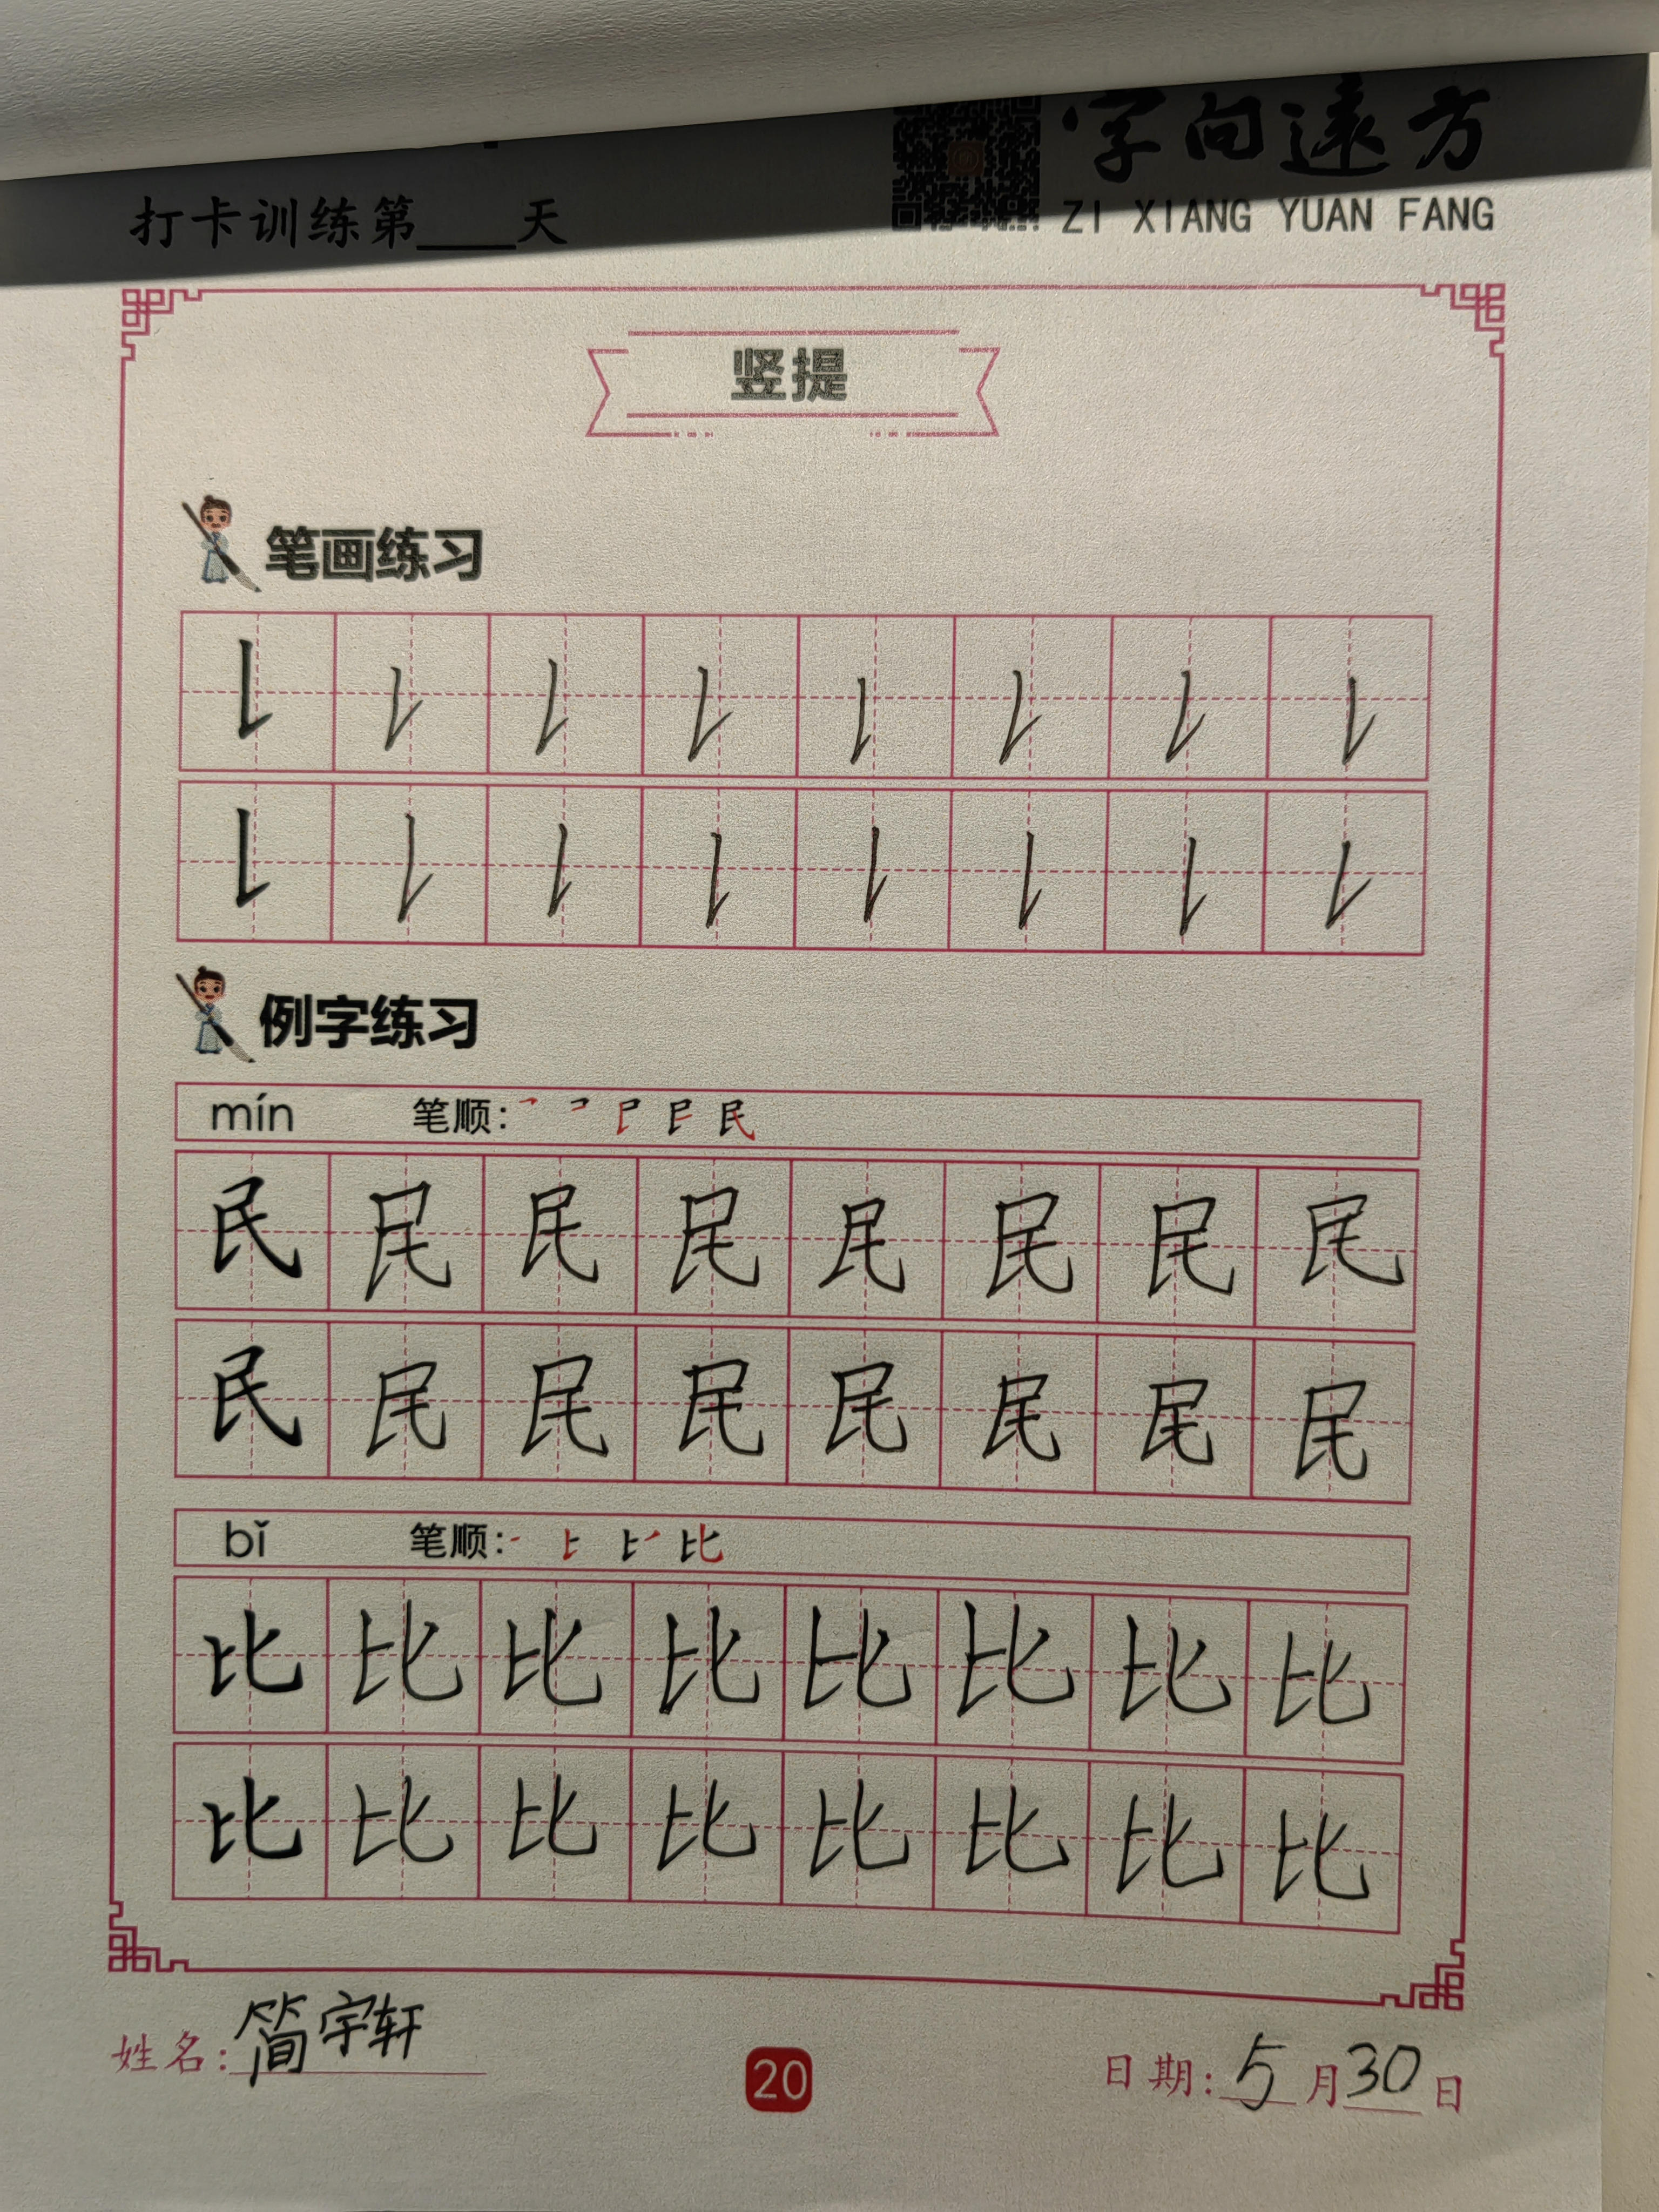 字向远方
ZI XIANG YUAN FANG
打卡训练第____天
竖提
笔画练习
例字练习
mín 笔顺:
民 民 民 民 民 民 民 民
民 民 民 民 民 民 民 民
bǐ 笔顺:
比 比 比 比 比 比 比 比
比 比 比 比 比 比 比 比
姓名:简宇轩
20
日期:5月30日